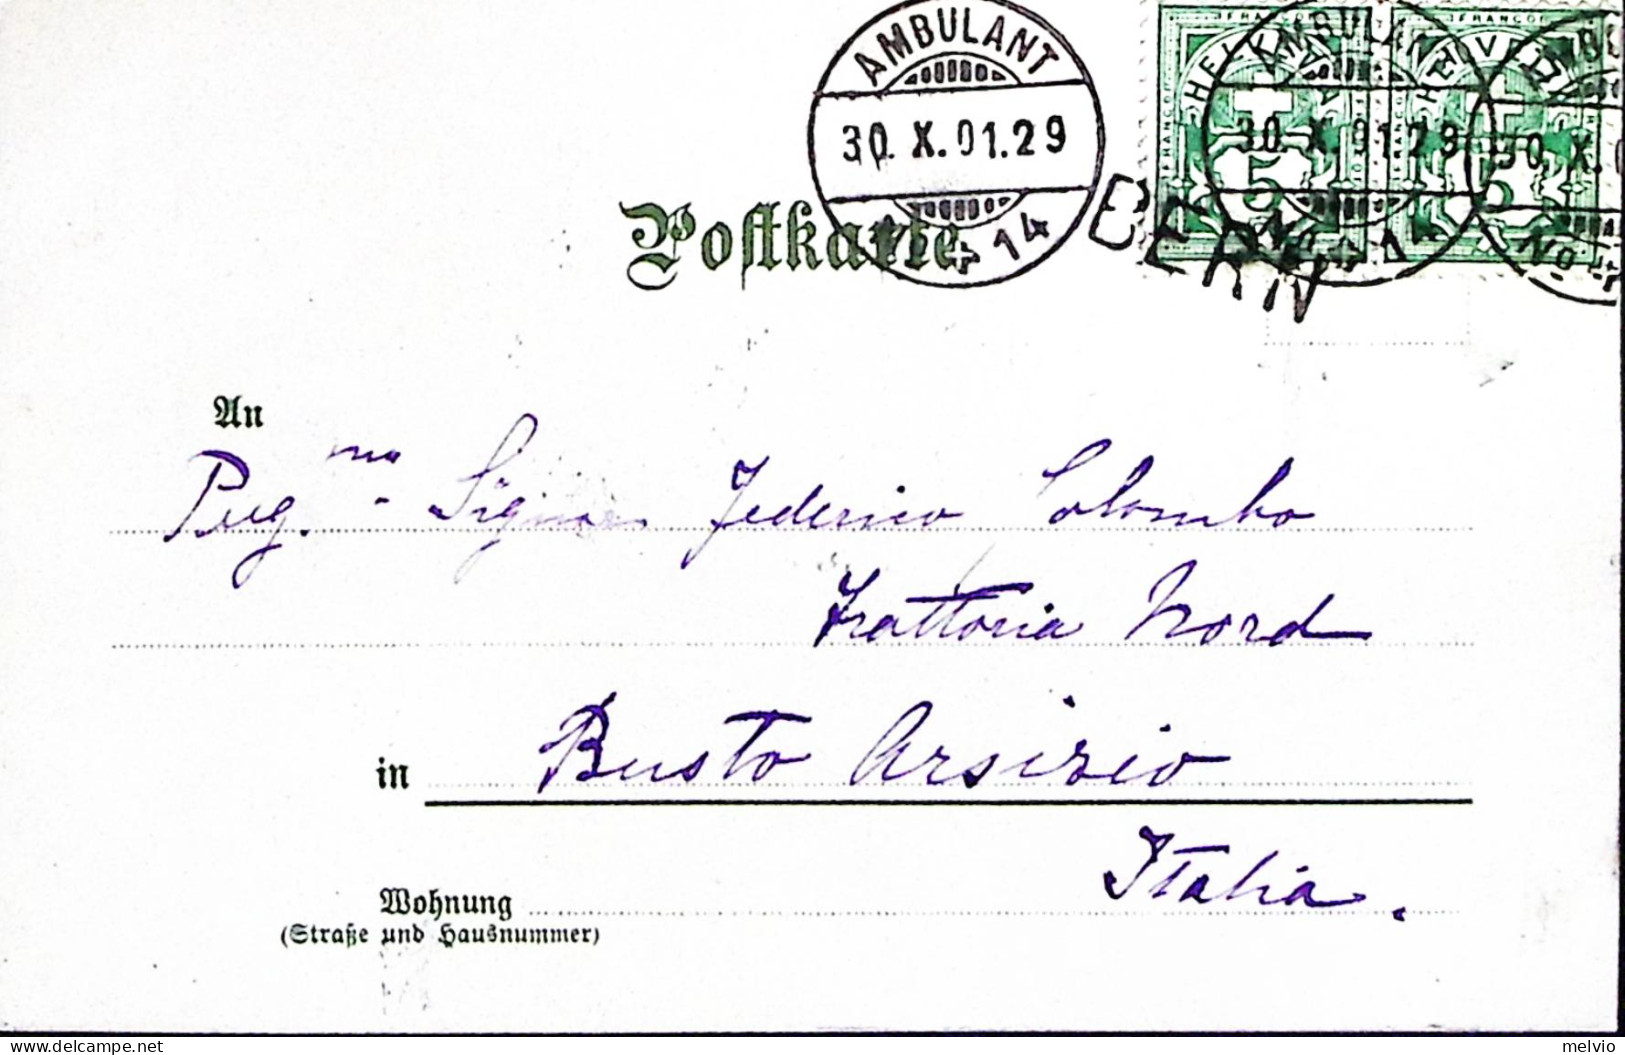 AMBULANT
30.X.01.29
No 4 14
FRANCO FRANCO
HELVETIA HELVETIA
5 5
AMBULANT
30.X.01.29
No 4 14
30.X.
No 4
BERN
Postkarte
An
Preg.ma Signor Federico Colombo
Trattoria Nord
in Busto Arsizio
Italia.
Wohnung
(Straße und Hausnummer)
delcampe.net
melvio